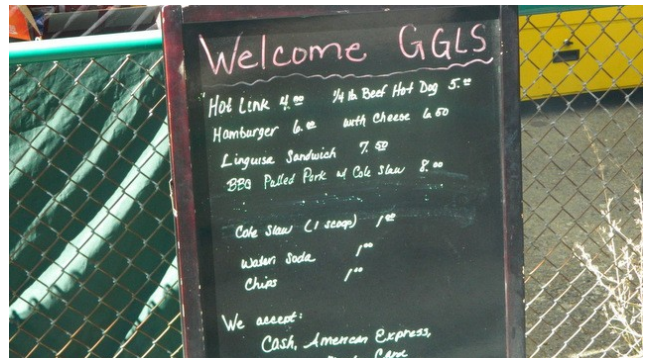 Welcome GGLS
Hot Link 4.00 1/4 lb Beef Hot Dog 5.00
Hamburger 6.00 with Cheese 6.50
Linguisa Sandwich 7.50
BBQ Pulled Pork w/ Cole Slaw 8.00
Cole Slaw (1 scoop) 1.00
Water: Soda 1.00
Chips 1.00
We accept:
Cash, American Express,